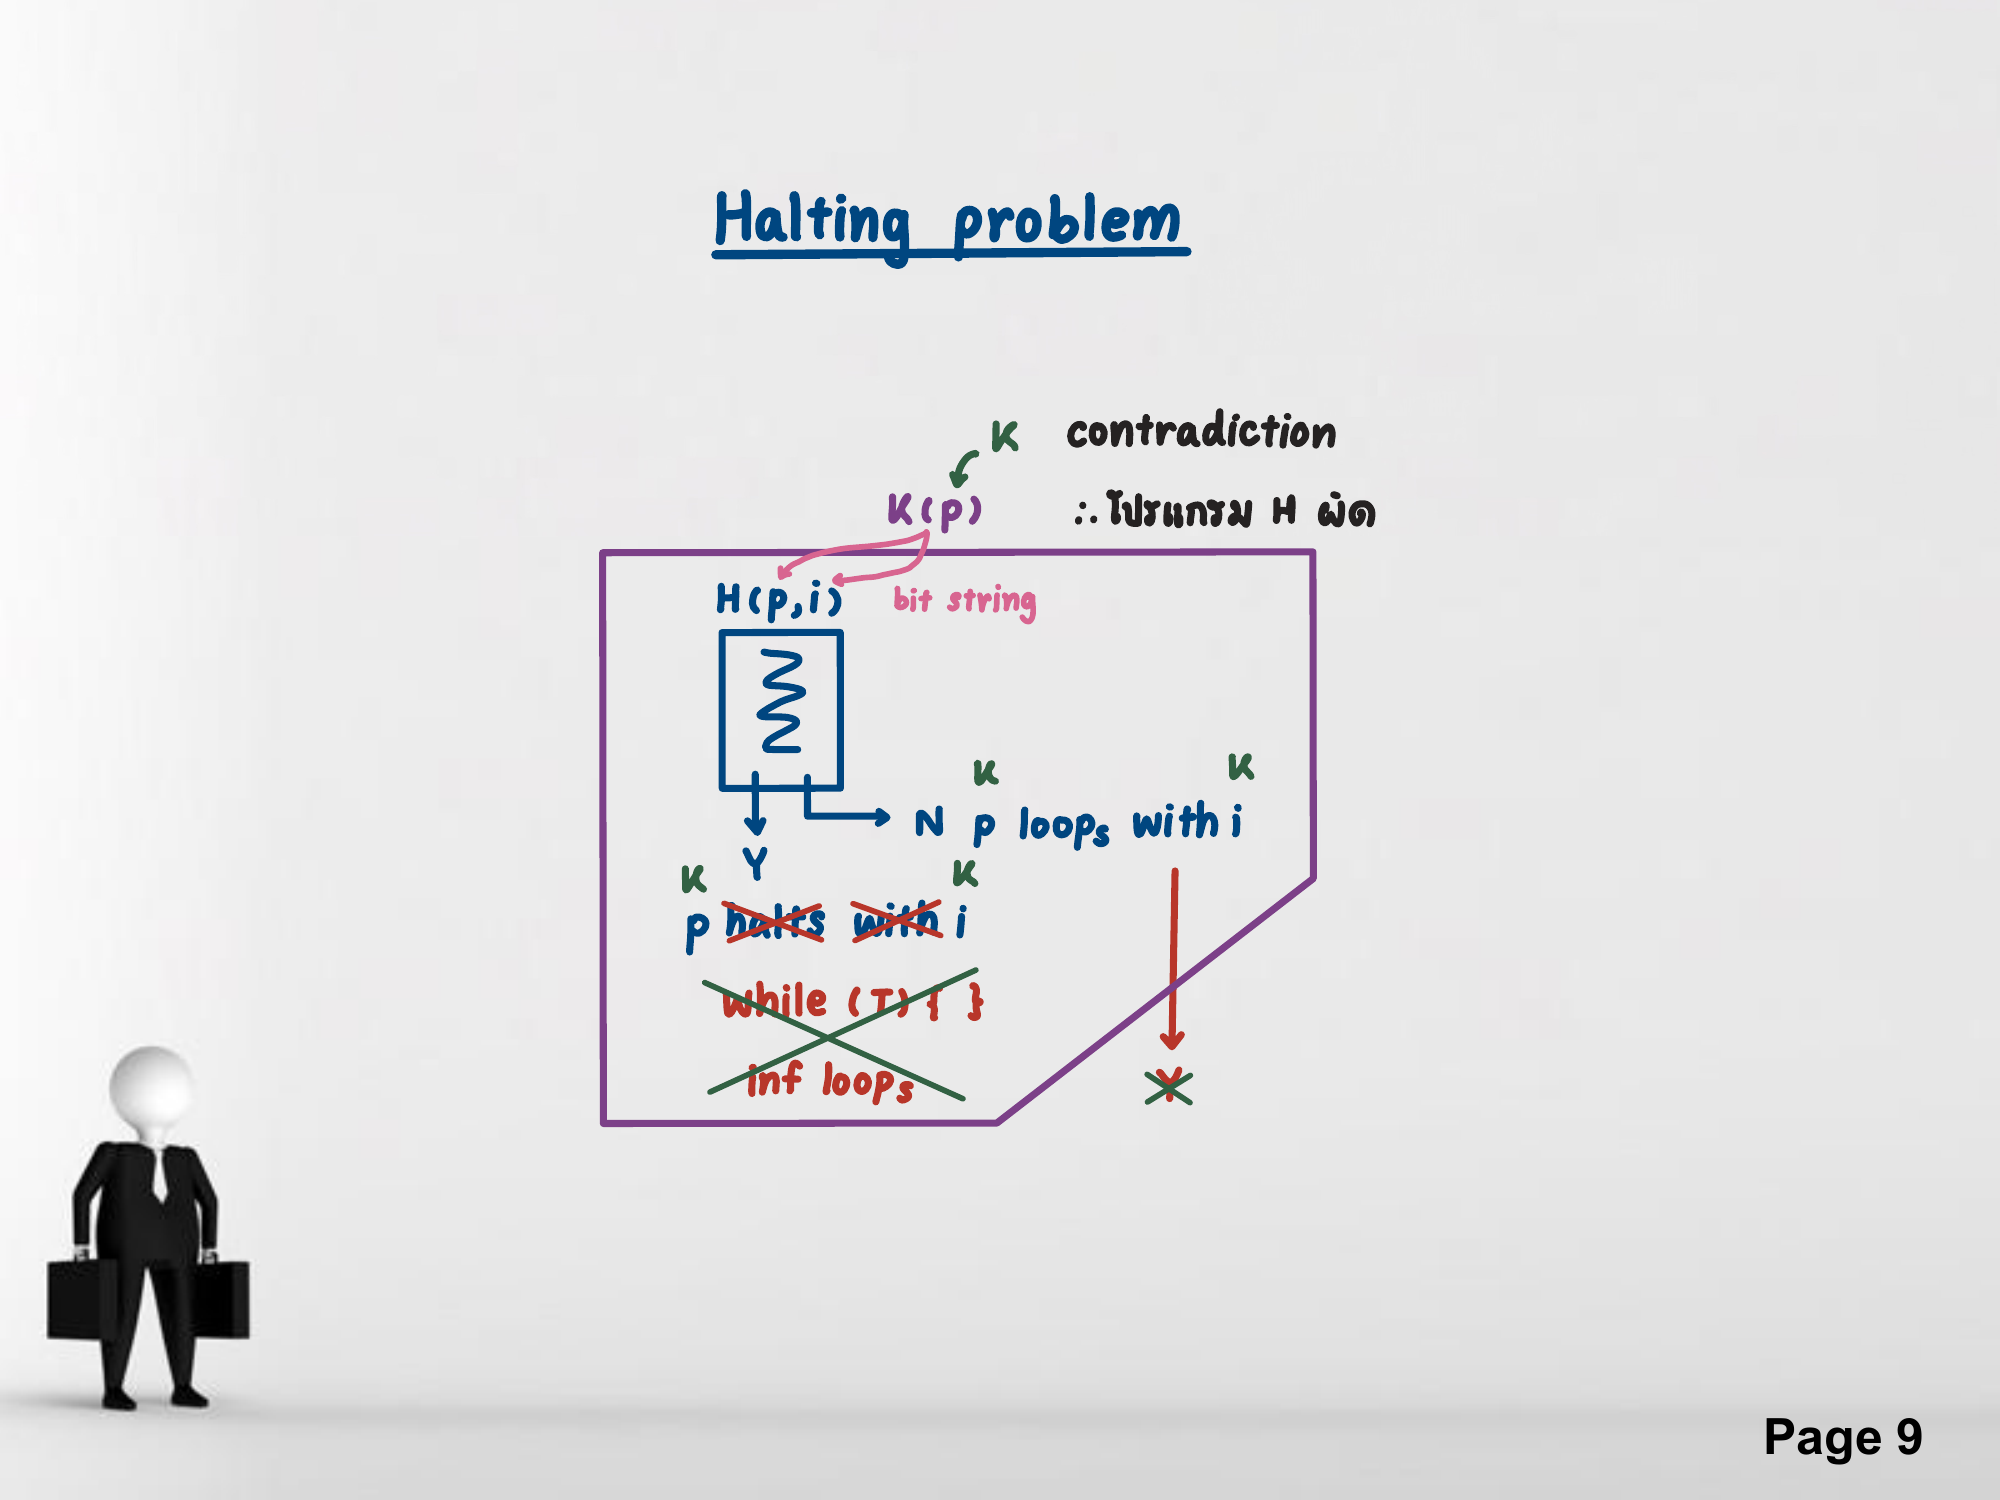 Halting problem
K contradiction
K(p) ∴ โปรแกรม H ผิด
H(p,i) bit string
K K
N p loops with i
Y
K K
p halts with i
while (T) { }
inf loops
Y
Page 9